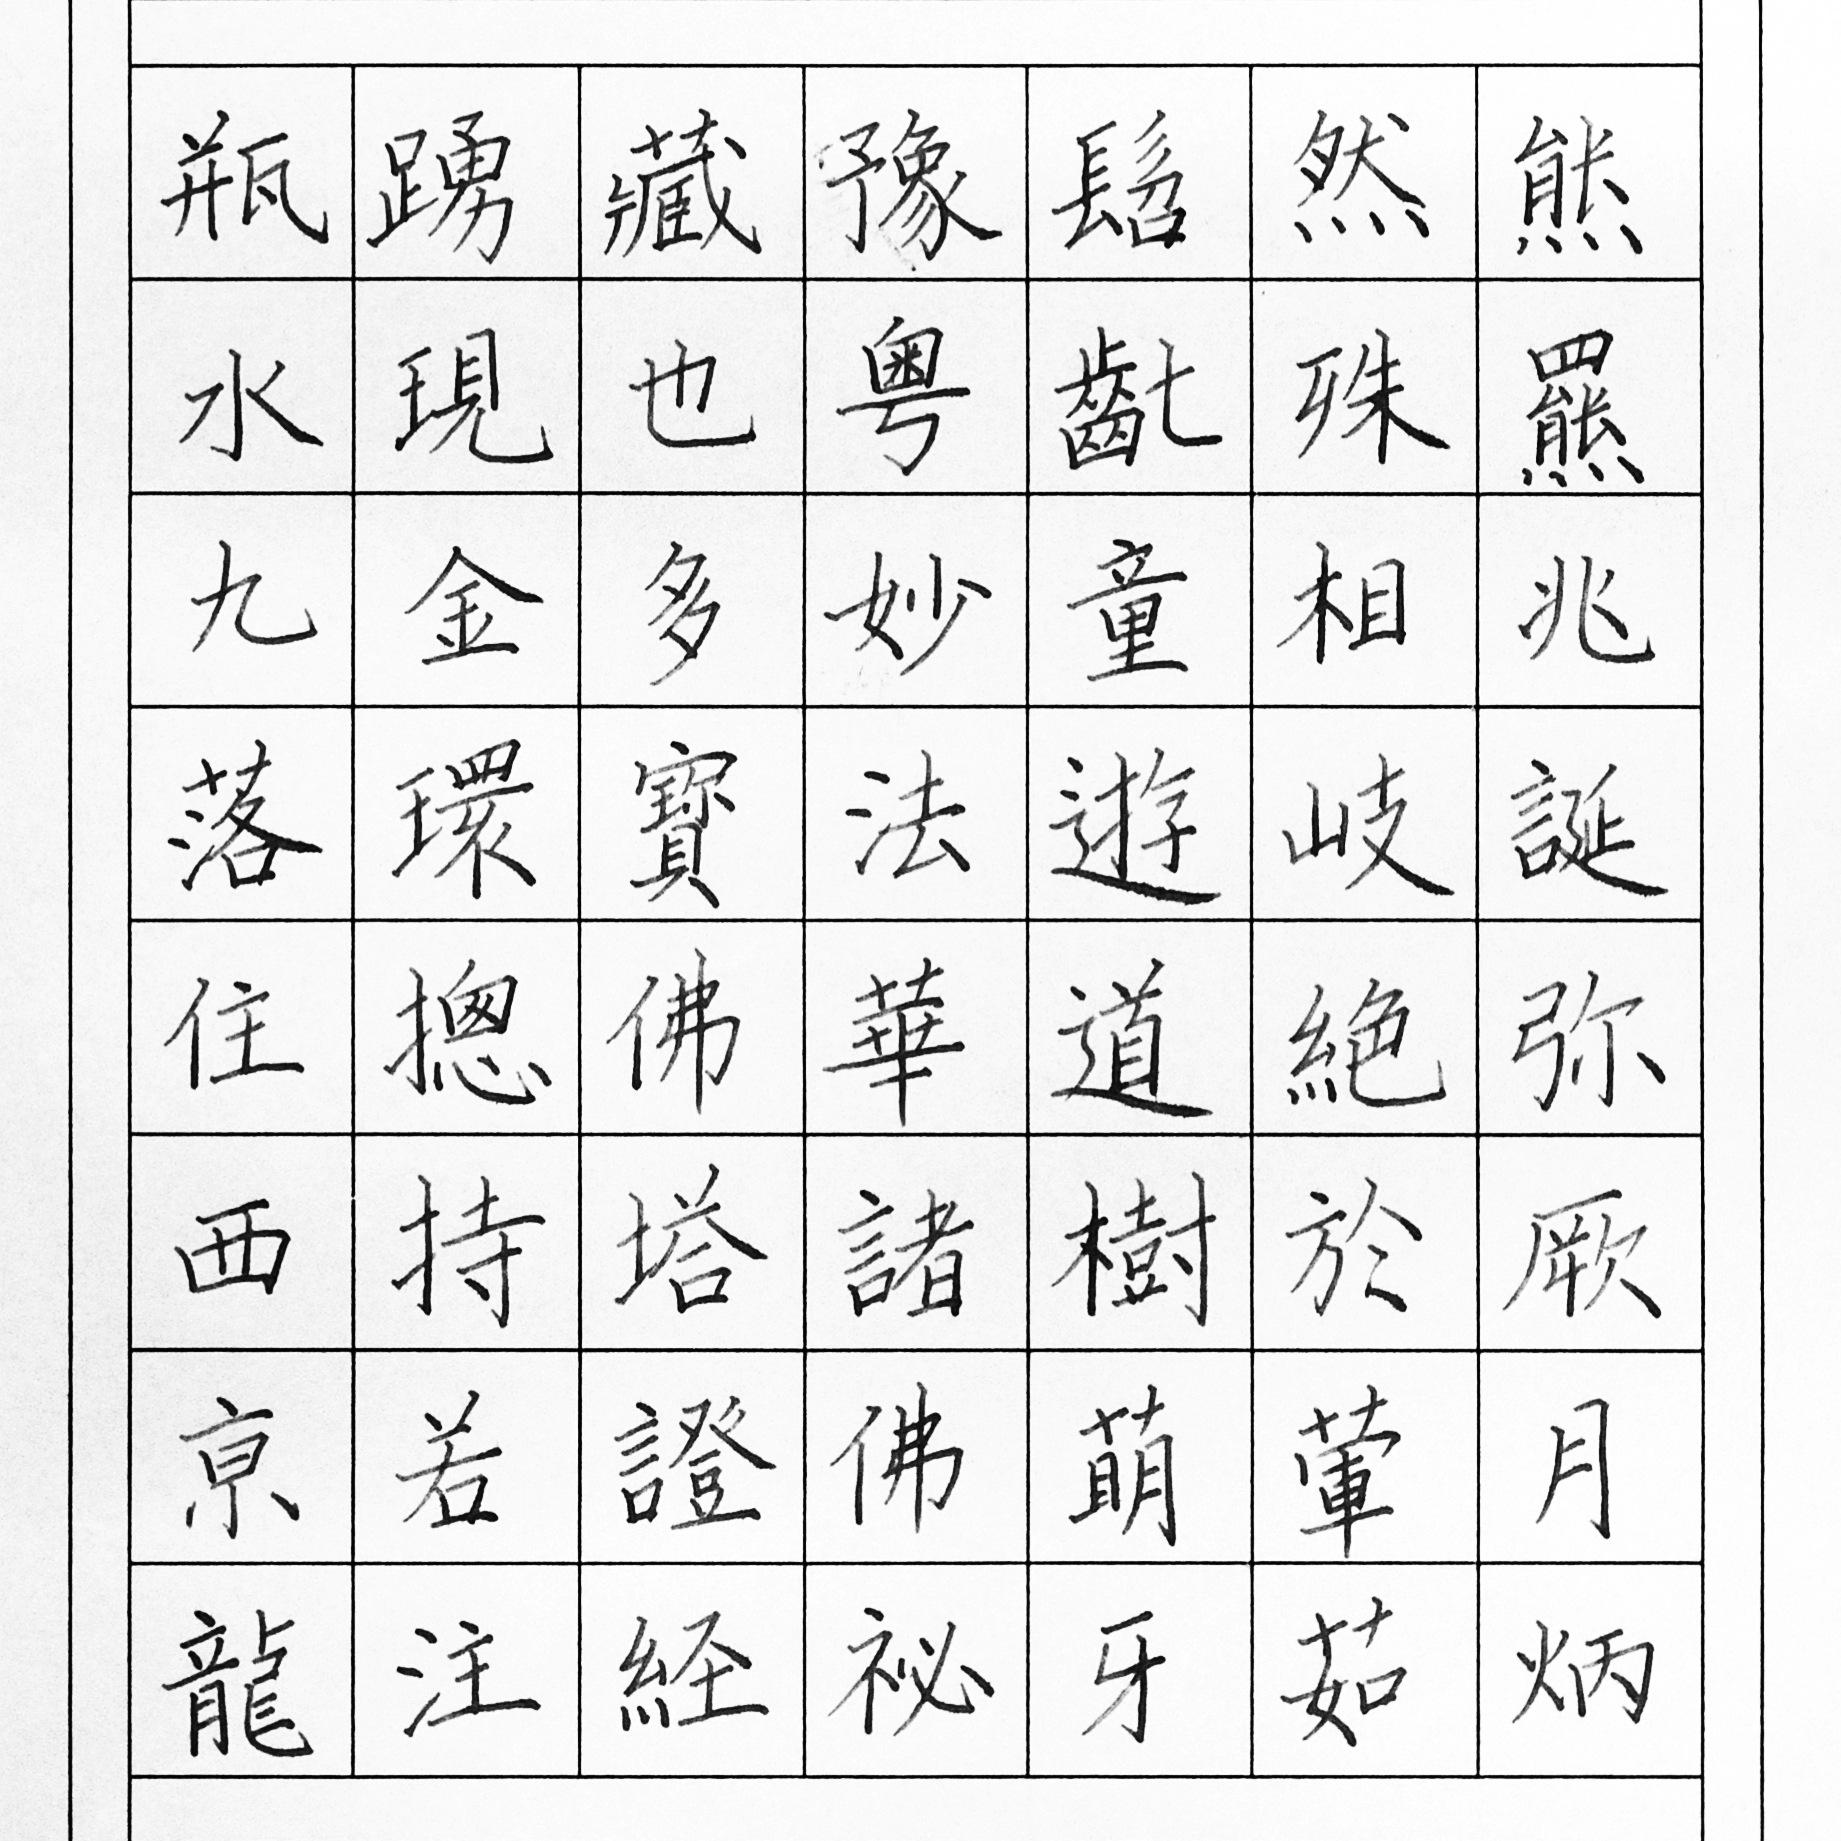 熊羆兆誕弥厥月炳
然殊相岐絕於葷茹
髫齔童遊道樹萌牙
豫粤妙法華諸佛祕
藏也多寶佛塔證経
踴現金環揔持若注
瓶水九落住西亰龍